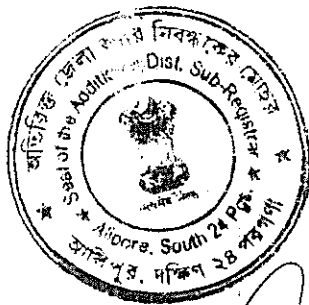 অতিরিক্ত জেলা অবর নিবন্ধকের মোহর
Seal of the Additional Dist. Sub-Registrar
Alipore, South 24 Pgs.
আলিপুর, দক্ষিণ ২৪ পরগণা